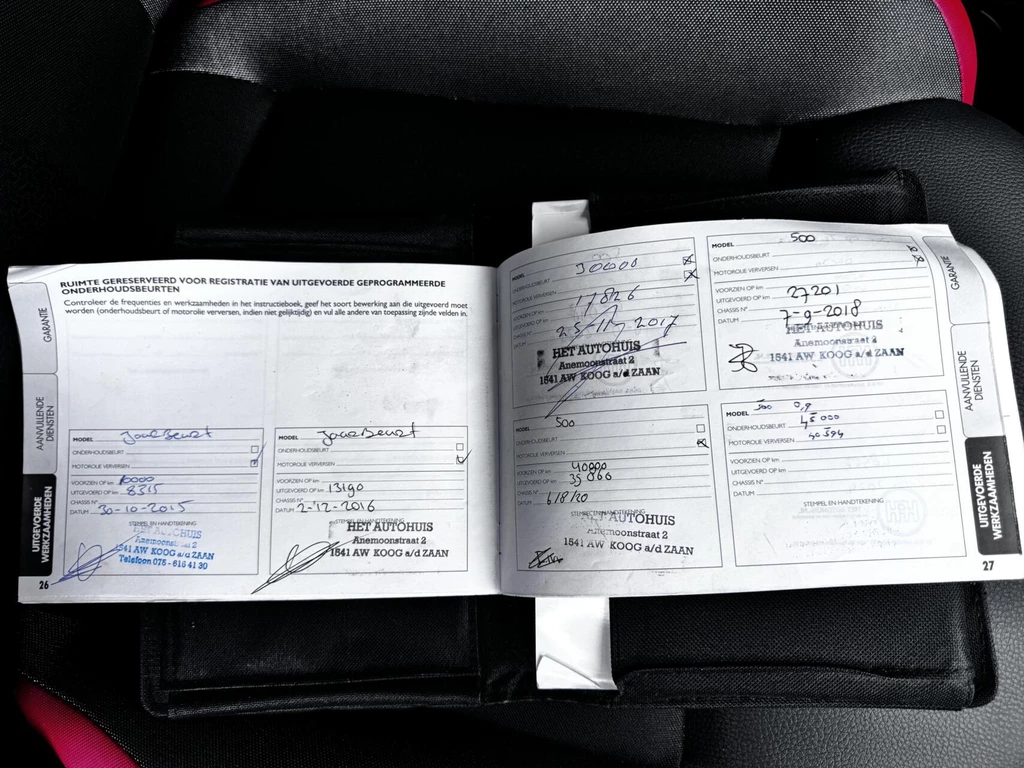 RUIMTE GERESERVEERD VOOR REGISTRATIE VAN UITGEVOERDE GEPROGRAMMEERDE
ONDERHOUDSBEURTEN
Controleer de frequenties en werkzaamheden in het instructieboek, geef het soort bewerking aan die uitgevoerd moet
worden (onderhoudsbeurt of motorolie verversen, indien niet gelijktijdig) en vul alle andere van toepassing zijnde velden in.
GARANTIE
AANVULLENDE
DIENSTEN
UITGEVOERDE
WERKZAAMHEDEN
26
MODEL
ONDERHOUDSBEURT
MOTOROLIE VERVERSEN
VOORZIEN OP km 10000
UITGEVOERD OP km 8315
CHASSIS N°
DATUM 30-10-2015
STEMPEL EN HANDTEKENING
HET AUTOHUIS
Anemoonstraat 2
1541 AW KOOG a/d ZAAN
Telefoon 075 - 616 41 30
MODEL
ONDERHOUDSBEURT
MOTOROLIE VERVERSEN
VOORZIEN OP km
UITGEVOERD OP km 13190
CHASSIS N°
DATUM 2-12-2016
STEMPEL EN HANDTEKENING
HET AUTOHUIS
Anemoonstraat 2
1541 AW KOOG a/d ZAAN
MODEL
ONDERHOUDSBEURT
MOTOROLIE VERVERSEN
VOORZIEN OP km
UITGEVOERD OP km 17826
CHASSIS N°
DATUM 25-11-2017
HET AUTOHUIS
Anemoonstraat 2
1541 AW KOOG a/d ZAAN
MODEL 500
ONDERHOUDSBEURT
MOTOROLIE VERVERSEN
VOORZIEN OP km
UITGEVOERD OP km 27201
CHASSIS N°
DATUM 7-9-2018
HET AUTOHUIS
Anemoonstraat 2
1541 AW KOOG a/d ZAAN
MODEL 500
ONDERHOUDSBEURT
MOTOROLIE VERVERSEN
VOORZIEN OP km 40000
UITGEVOERD OP km 35066
CHASSIS N°
DATUM 6/8/20
STEMPEL EN HANDTEKENING
HET AUTOHUIS
Anemoonstraat 2
1541 AW KOOG a/d ZAAN
MODEL 500 0,9
ONDERHOUDSBEURT 45000
MOTOROLIE VERVERSEN 40594
VOORZIEN OP km
UITGEVOERD OP km
CHASSIS N°
DATUM
STEMPEL EN HANDTEKENING
GARANTIE
AANVULLENDE
DIENSTEN
UITGEVOERDE
WERKZAAMHEDEN
27